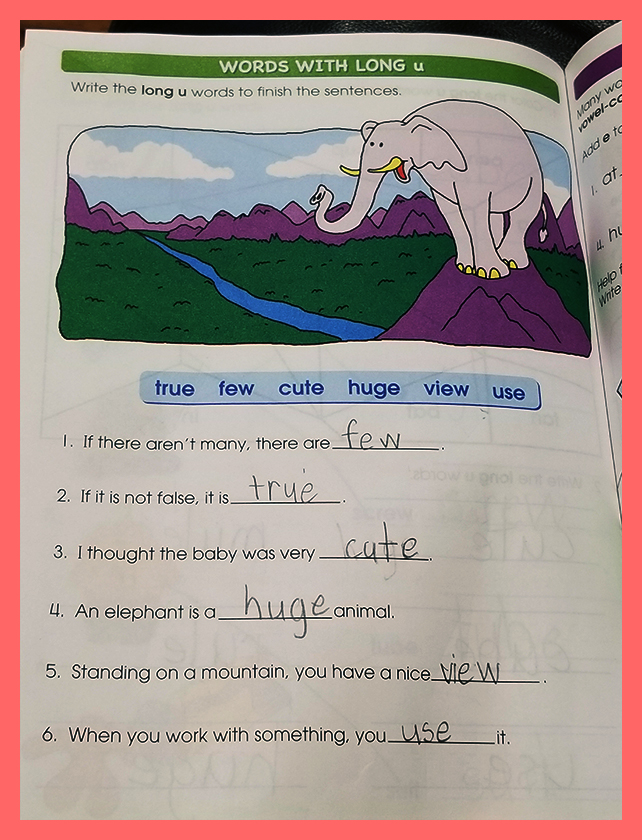 WORDS WITH LONG u
Write the long u words to finish the sentences.
true few cute huge view use
1. If there aren't many, there are few.
2. If it is not false, it is true.
3. I thought the baby was very cute.
4. An elephant is a huge animal.
5. Standing on a mountain, you have a nice view.
6. When you work with something, you use it.
Many wo
vowel-co
Add e to
1. at
4. hu
Help t
Write